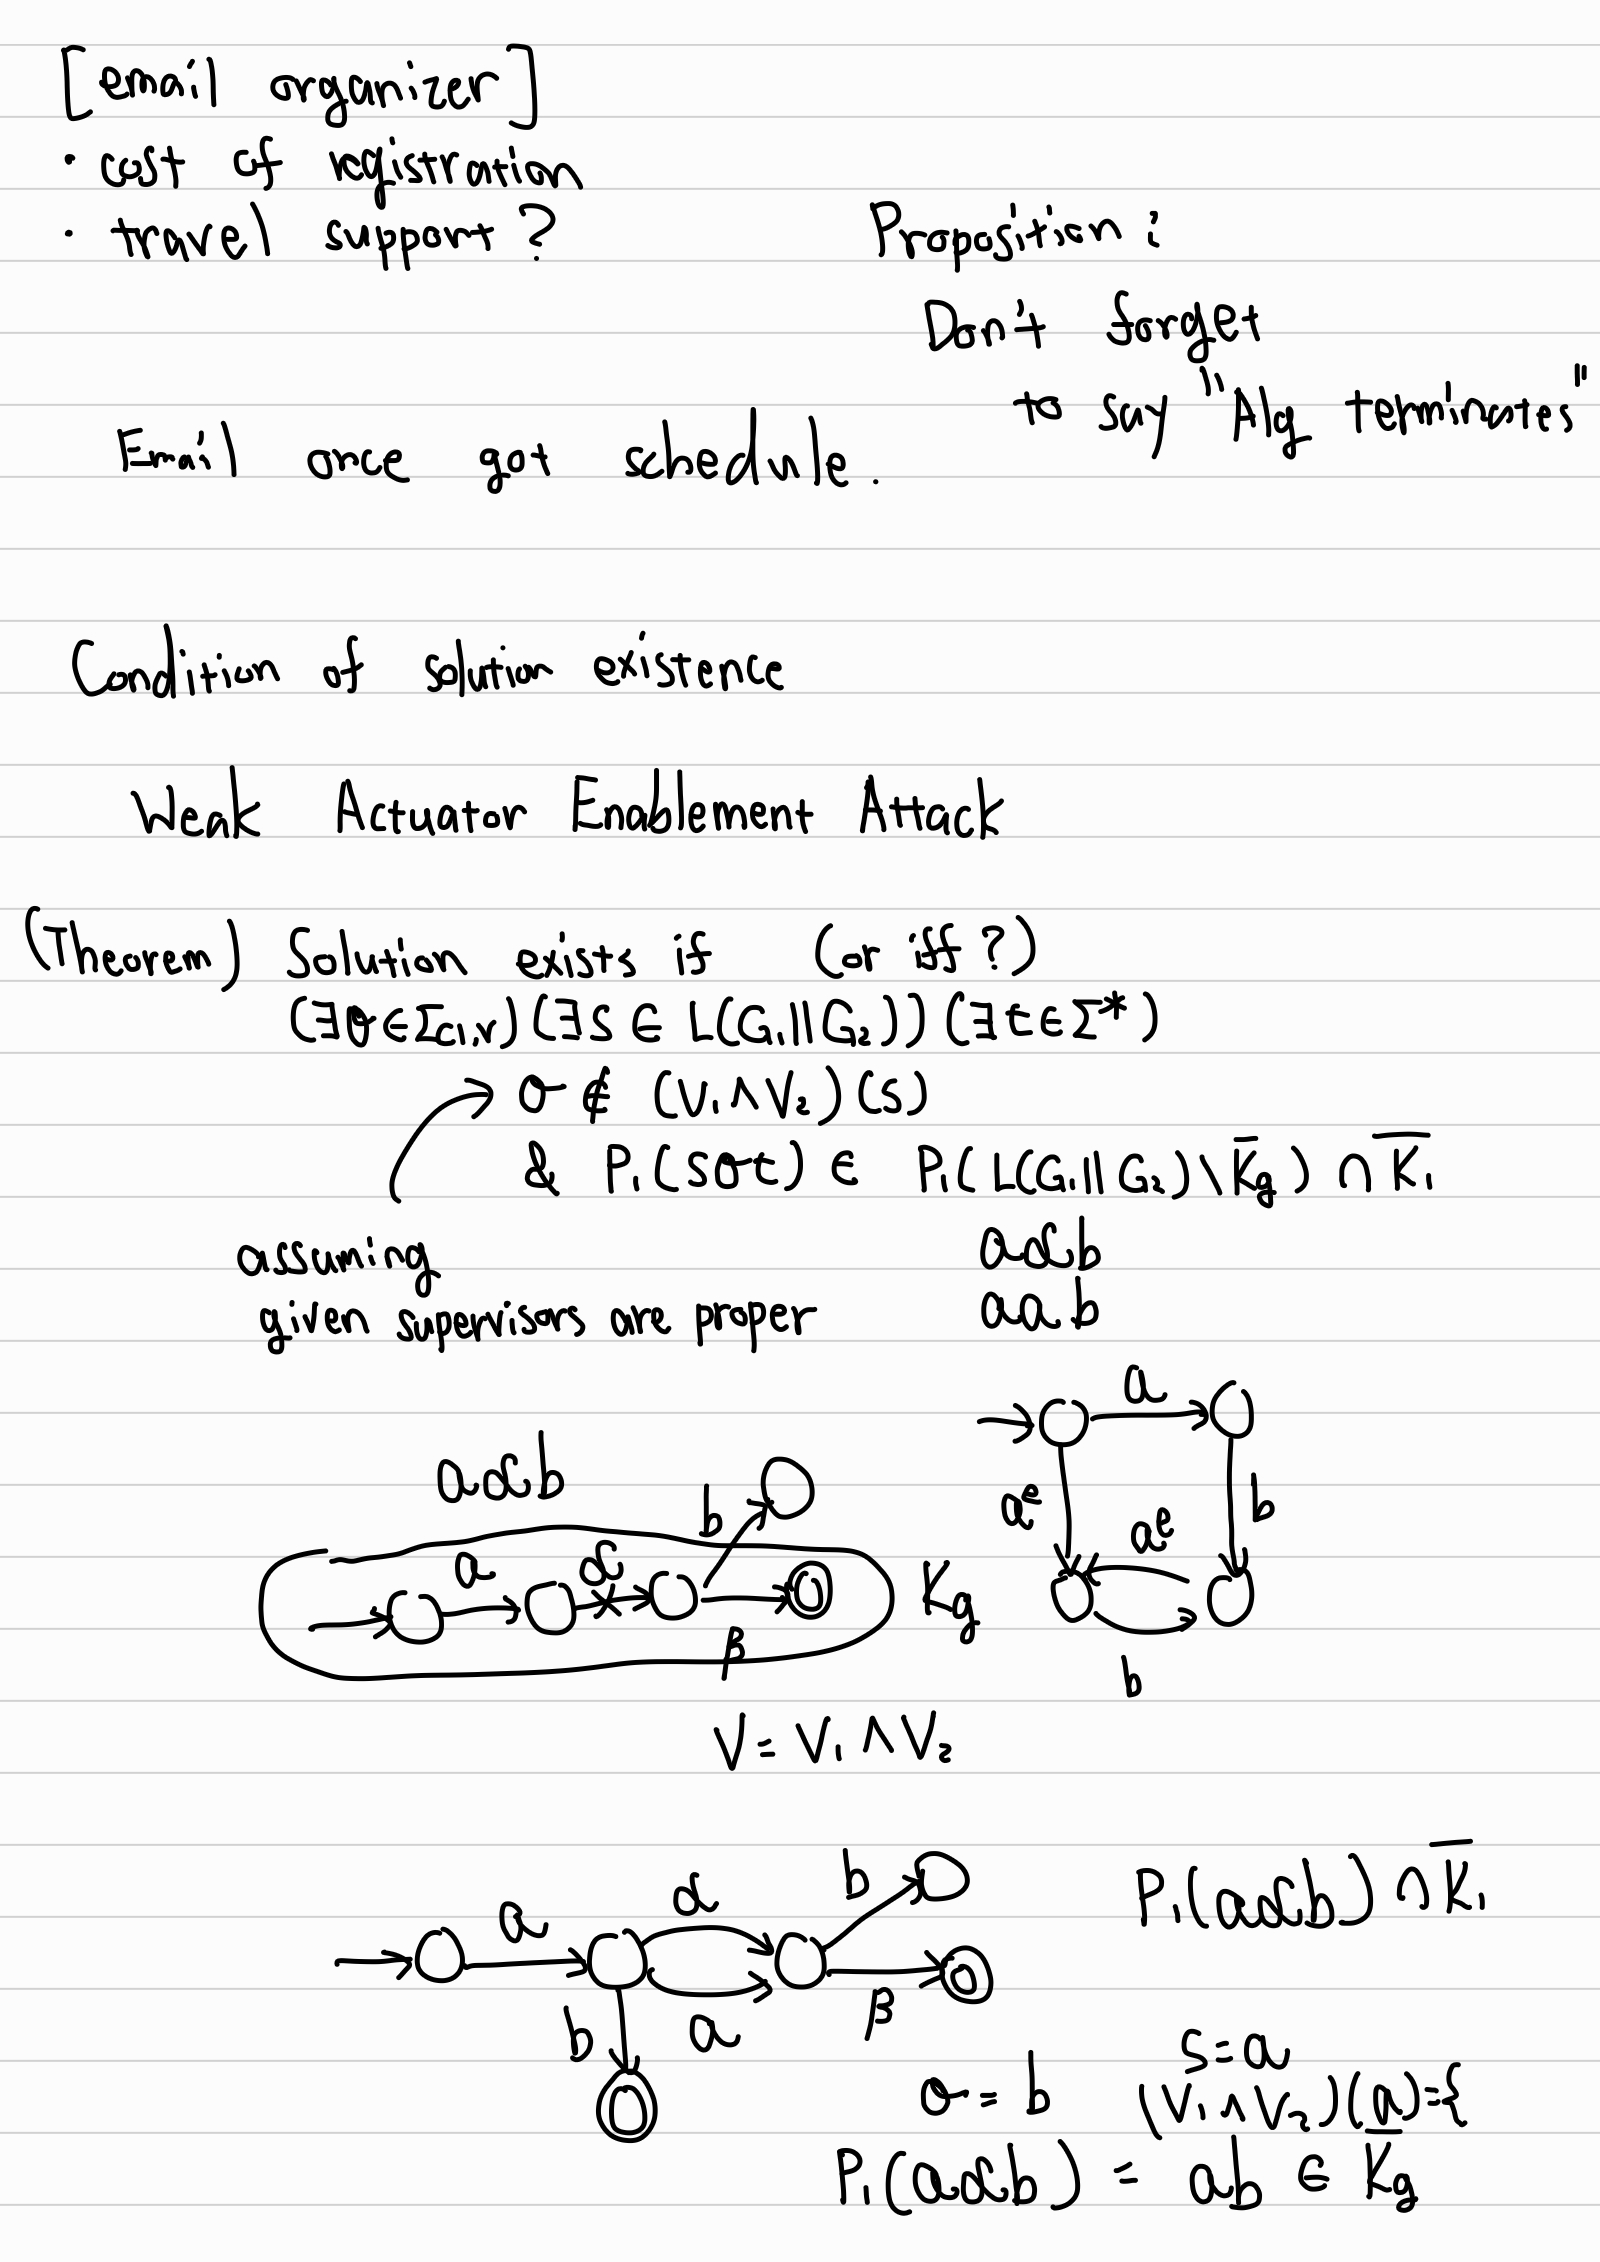 [email organizer]
· cost of registration
· travel support?
Proposition:
Don't forget
to say "Alg terminates"
Email once got schedule.
Condition of solution existence
Weak Actuator Enablement Attack
(Theorem) Solution exists if (or iff?)
(∃σ∈Σc1,v)(∃s ∈ L(G₁||G₂))(∃t∈Σ*)
σ ∉ (V₁∧V₂)(s)
& P₁(sσt) ∈ P₁(L(G₁||G₂)\K̅g) ∩ K̅₁
assuming
given supervisors are proper
aαb
aab
a
aᵉ
b
aᵉ
b
aαb
a
α
b
β
Kg
V = V₁ ∧ V₂
a
α
a
b
β
b
P₁(aαb) ∩ K̅₁
s=a
σ = b (V₁∧V₂)(a)={
P₁(aαb) = ab ∈ K̅g